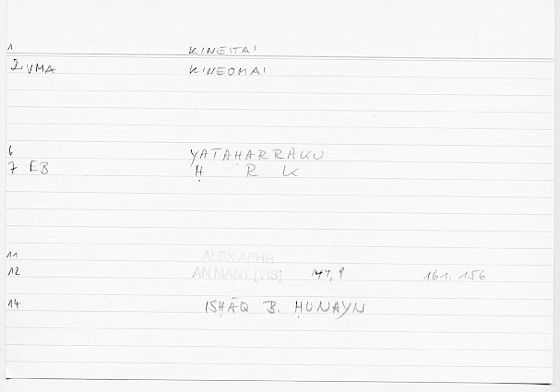 1 KINEITAI
2 VMA KINEOMAI
6 YATAḤARRAKU
7 EB Ḥ R K
11 ALEX APHR
12 AN MANT [VIS] 161. 156
14 ISḤĀQ B. ḤUNAYN